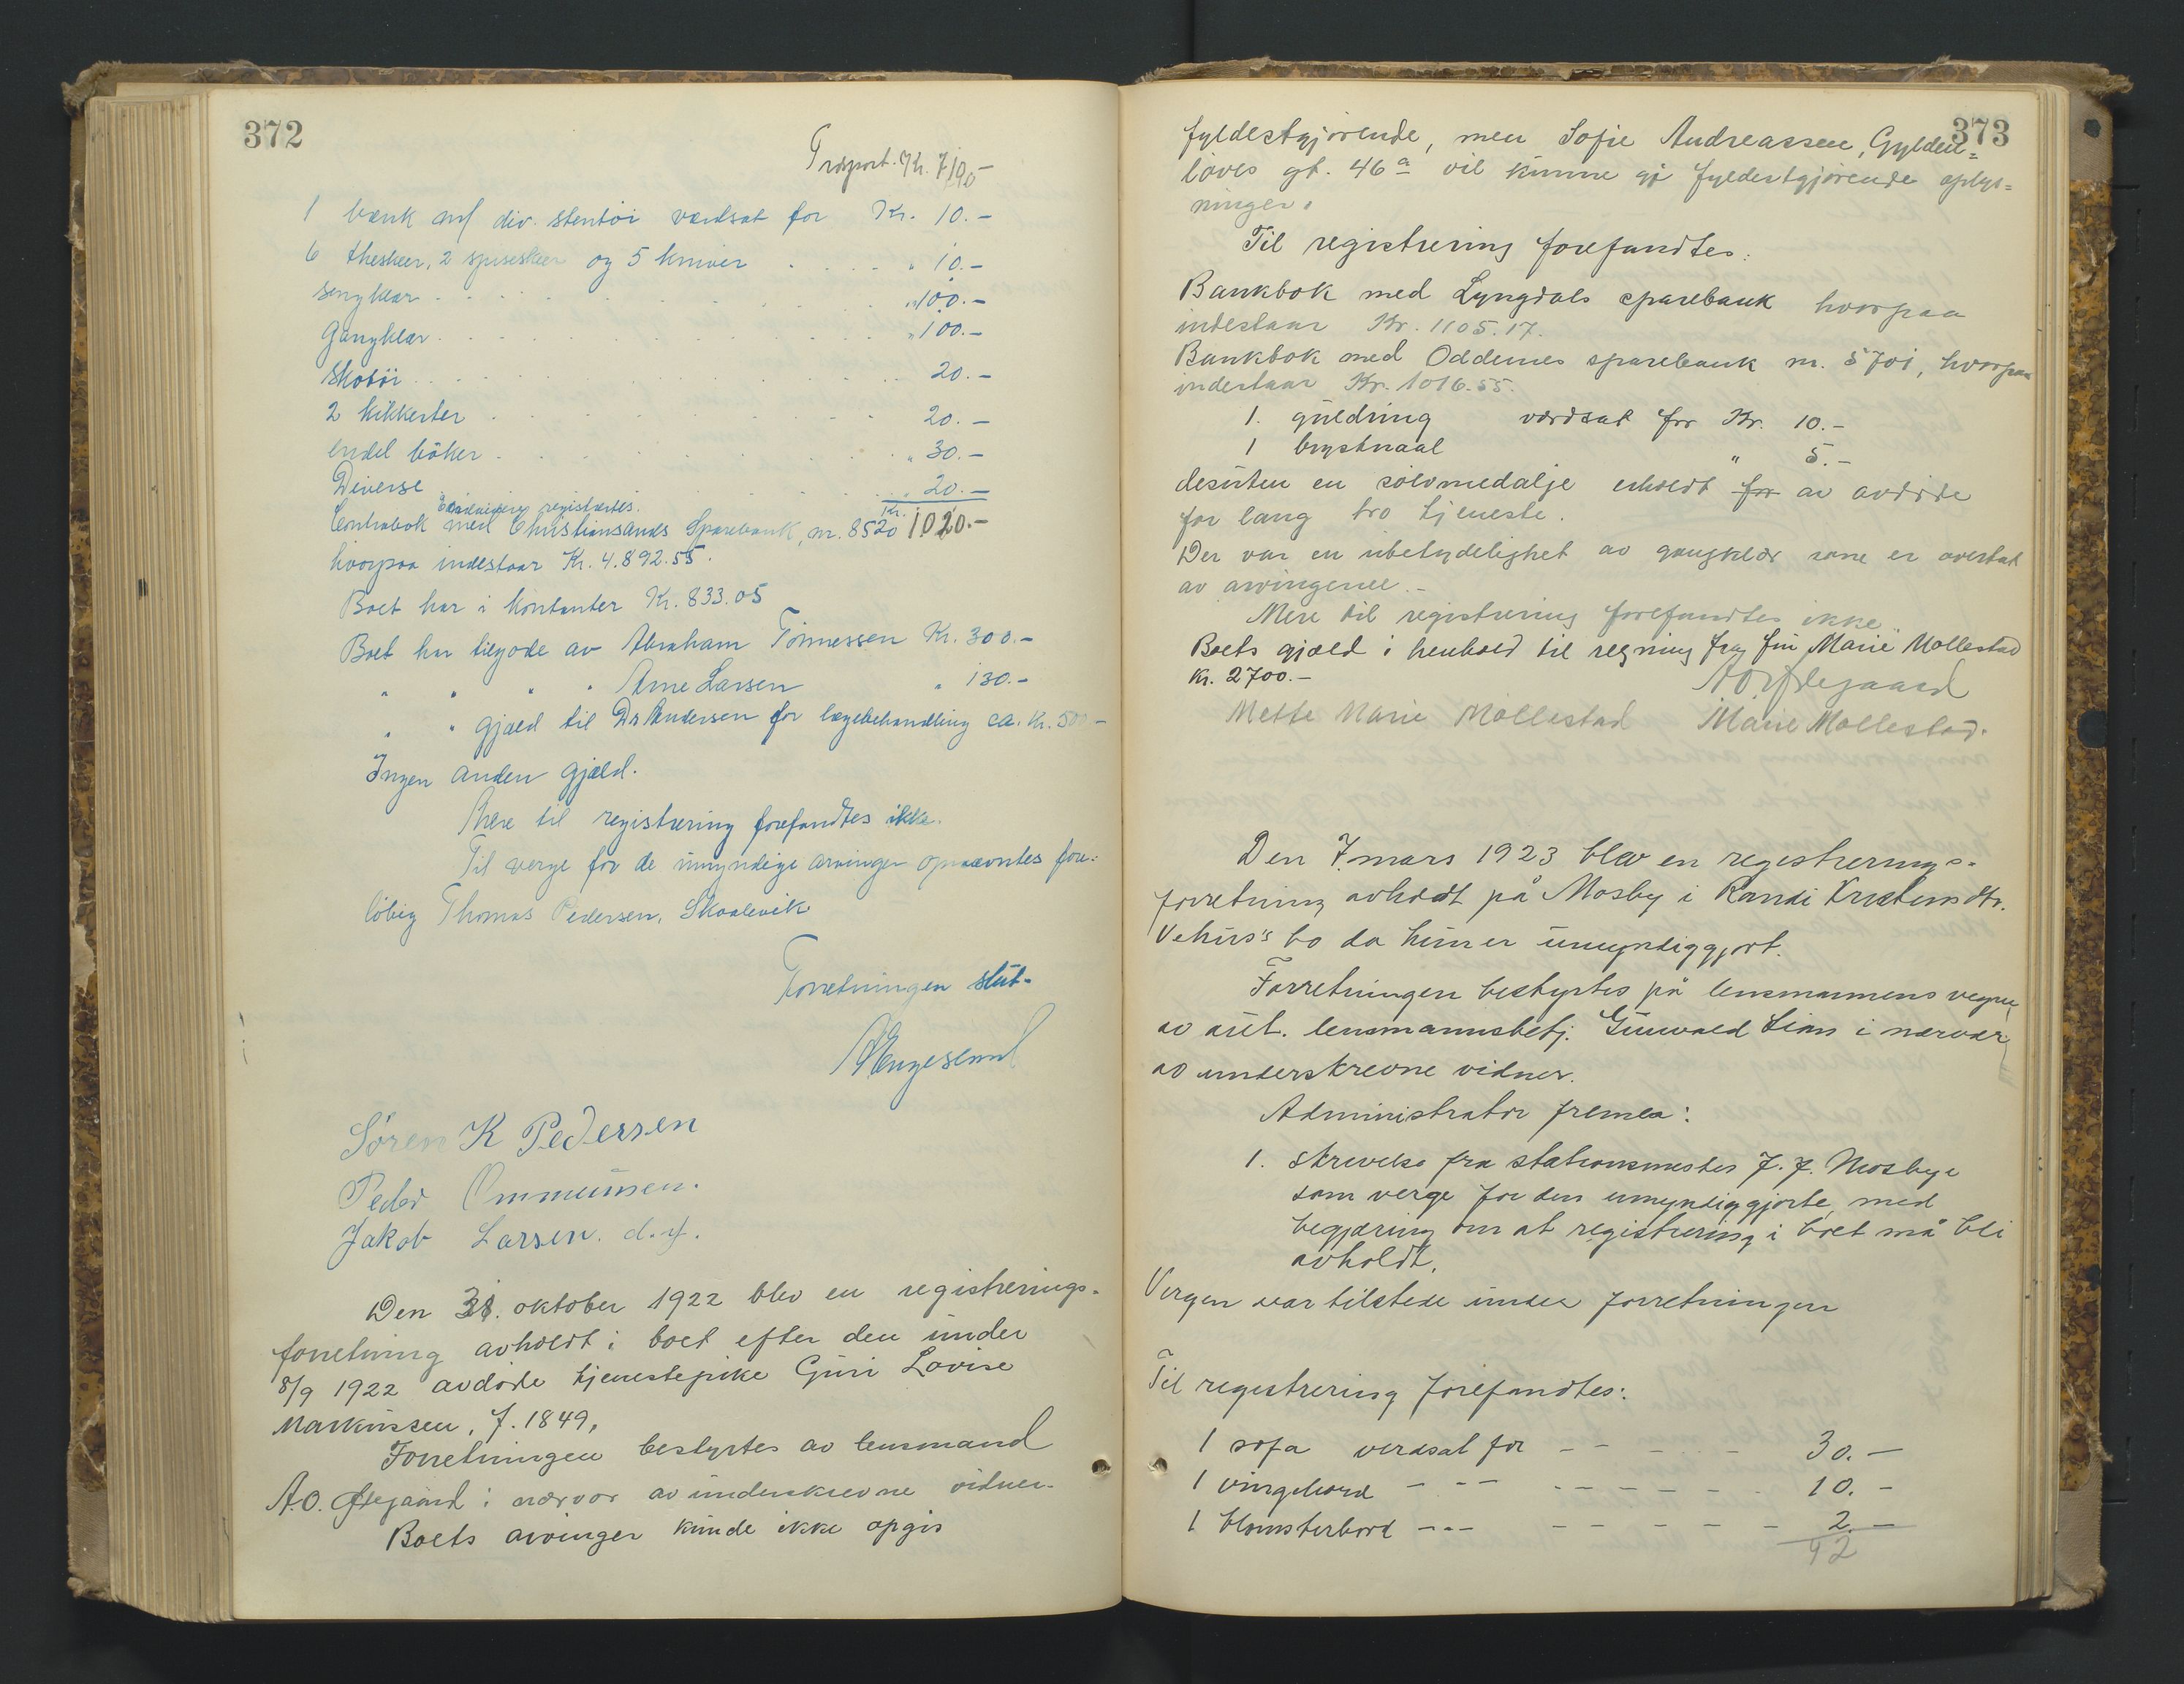 372
Trsport. Kr. 710.-
1 bænk m/ div. stentöi værdsat for Kr. 10.-
6 theskeer, 2 spiseskeer og 5 kniver . . . . " 10.-
Sengklær . . . "100.-
Gangklær . . . "100.-
Skotöi . . . 20.-
2 kikkerter . . . 20.-
endel böker . . . " 30.-
Diverse . . . " 20.-
Endvidere registrertes. Kr.
Contrabok med Christiansands Sparebank, nr. 8520 1020.-
hvorpaa indestaar Kr. 4.892.55.
Boet har i kontanter Kr. 833.05
Boet har tilgode av Abraham Tönnessen Kr. 300.-
" " " " Arne Larsen " 130.-
" " gjæld til Dr Andersen for lægebehandling ca. Kr. 500-
Ingen anden gjæld.
Mere til registrering forefandtes ikke.
Til verge for de umyndige arvinger opnævntes fore-
löbig Thomas Pedersen, Skaalevik
Forretningen slut-
Sören K Pedersen
Peder Ommundsen.
Jakob Larsen. d.y.
Den 31. oktober 1922 blev en registrerings-
forretning avholdt i boet efter den under
8/9 1922 avdöde tjenestepike Guri Lovise
Markussen, f. 1849,
Forretningen bestyrtes av lensmand
A.O. Ødegaard i nærvær av underskrevne vidner.
Boets arvinger kunde ikke opgis
373
fyldestgjörende, men Sofie Andreassen, Gylden=
löves gt. 46 a vil kunne gi fyldestgjörende oplys=
ninger.
Til registrering forefandtes:
Bankbok med Lyngdals sparebank hvorpaa
indestaar Kr. 1105.17.
Bankbok med Oddernes sparebank nr. 5701, hvorpaa
indestaar Kr. 1016.55.
1. guldring værdsat for Kr. 10.-
1 brystnaal " 5.-
desuten en sölvmedalje erholdt for av avdöde
for lang tro tjeneste.
Der var en ubetydelighet av gangklær som er overtat
av arvingerne.-
Mere til registrering forefandtes ikke.
Boets gjæld i henhold til regning fra fru Marie Mollestad
Kr. 2700.-
A O Ødegaard
Mette Marie Mollestad Marie Mollestad.
Den 7. mars 1923 blev en registrerings-
forretning avholdt på Mosby i Randi Kristensdtr.
Vehus's bo da hun er umyndiggjort.
Forretningen bestyrtes på lensmannens vegne
av aut. lensmannsbetj. Gunvald Lian i nærvær
av underskrevne vidner.
Administrator fremla:
1. skrivelse fra stationsmester J. J. Mosby
som verge for den umyndiggjorte, med
begjæring om at registrering i boet må bli
avholdt.
Vergen var tilstede under forretningen
Til registrering forefandtes:
1 sofa verdsat for - - - - - 30.-
1 vingebord - - - - - - - - 10.-
1 blomsterbord - - - - - - - - 2.-
42